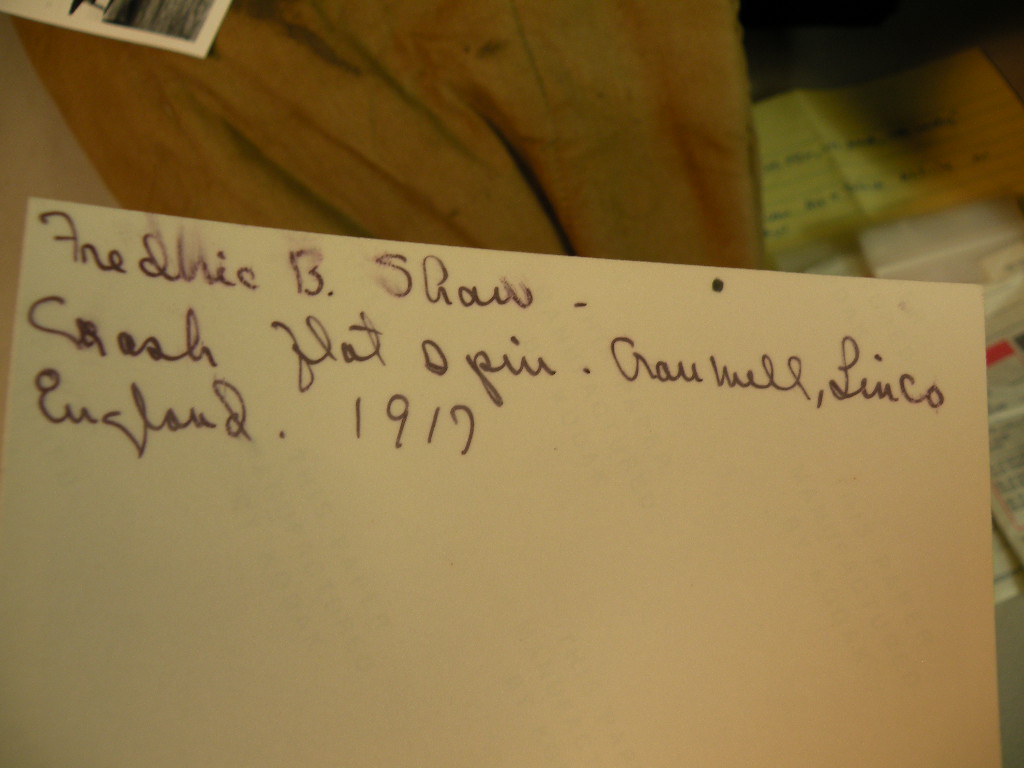 Fredric B. Shaw -
Crash flat spin. Cranwell, Linco
England. 1917